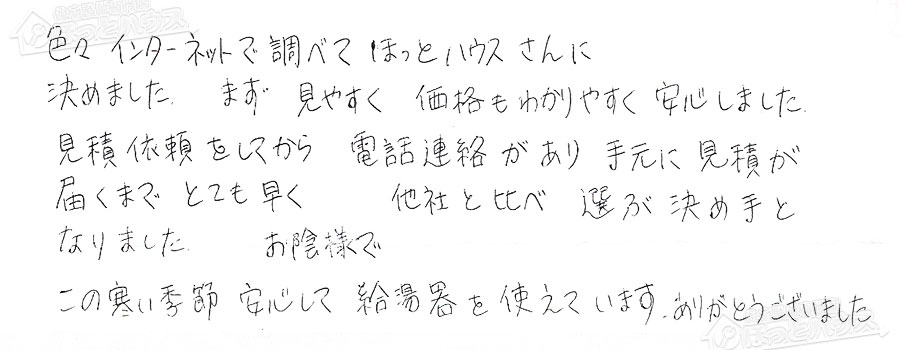 色々 インターネットで調べて ほっとハウス さんに
決めました. まず 見やすく 価格もわかりやすく 安心しました.
見積依頼をしてから 電話連絡があり 手元に見積が
届くまで とても早く 他社と比べ 選ぶ決め手と
なりました. お陰様で
この寒い季節 安心して 給湯器を使えています. ありがとうございました
ほっとハウス